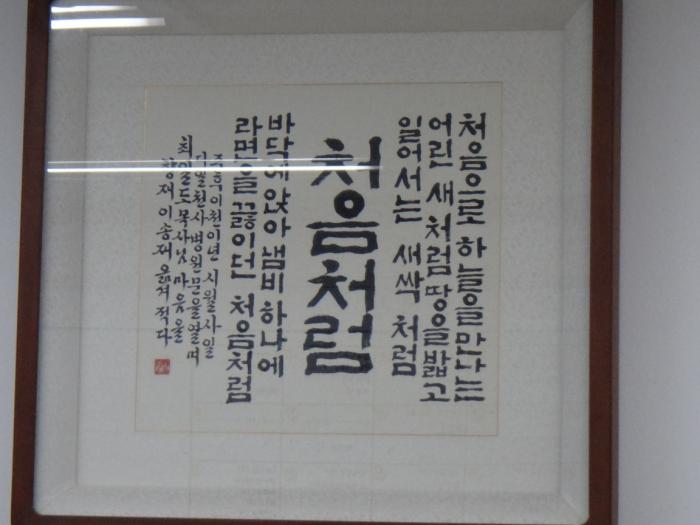 처음으로 하늘을 만나는
어린 새처럼 땅을 밟고
일어서는 새싹 처럼
처음처럼
바닥에 앉아 냄비 하나에
라면을 끓이던 처음처럼
이천이년 시월사일
천사병원문을 열며
최일도 목사님 마음을
이송재 옮겨 적다